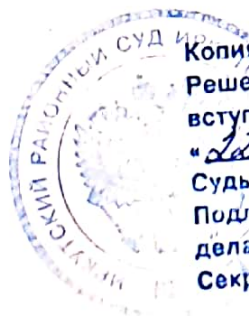 ИРКУТСКИЙ РАЙОННЫЙ СУД ИР
Копия
Реше
вступ
« 22
Судь
Подл
дела
Секр